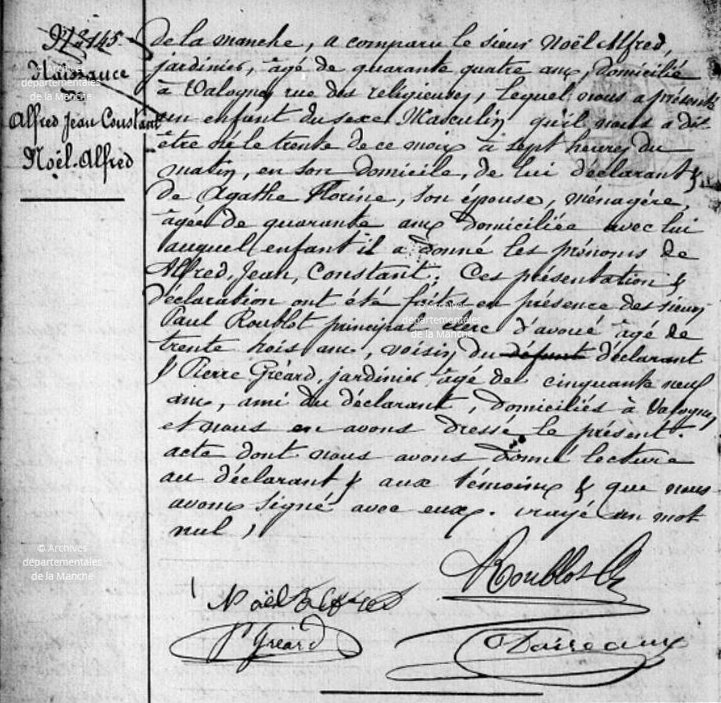 N° 145
Naissance
Alfred Jean Constant
Noël-Alfred
de la manche, a comparu le sieur Noël Alfred,
jardinier, âgé de quarante quatre ans, domicilié
à Valognes rue des religieuses, lequel nous a présenté
un enfant du sexe Masculin qu'il nous a dit
être né le trente de ce mois à sept heures du
matin, en son domicile, de lui déclarant &
de Agathe Florine, son épouse, ménagère,
âgée de quarante ans domiciliée avec lui
auquel enfant il a donné les prénoms de
Alfred, Jean, Constant; Ces présentation &
déclaration ont été faites en présence des sieurs
Paul Roublot principal clerc d'avoué âgé de
trente trois ans, voisin du défunt déclarant
& Pierre Gréard, jardinier âgé de cinquante neuf
ans, ami du déclarant, domiciliés à Valognes,
et nous en avons dressé le présent
acte dont nous avons donné lecture
au déclarant & aux témoins & que nous
avons signé avec eux. rayé un mot
nul,
Roublot
Noël Alfred
P Gréard
© Archives
départementales
de la Manche
© Archives
départementales
de la Manche
© Archives
départementales
de la Manche